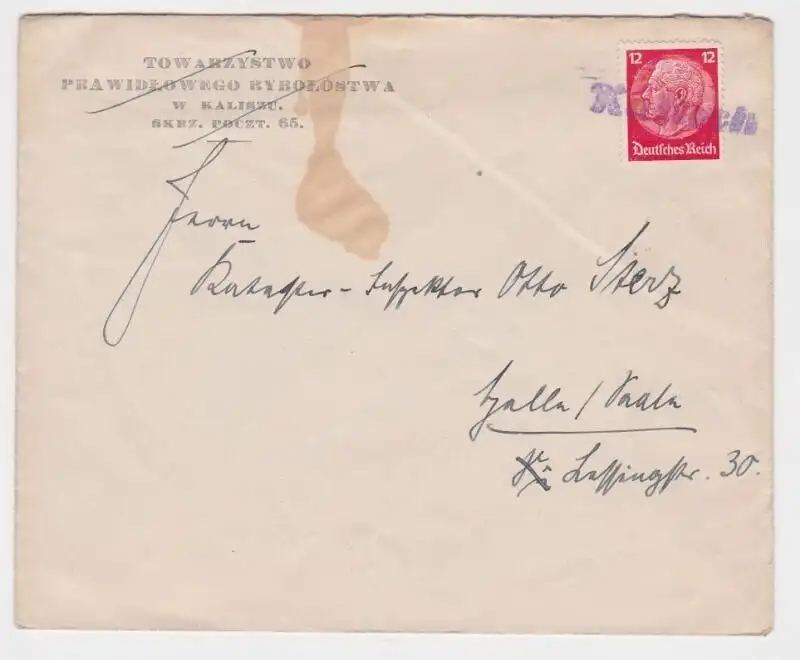 TOWARZYSTWO
PRAWIDŁOWEGO RYBOŁÓSTWA
W KALISZU.
SKRZ. POCZT. 65.
12 12
Deutsches Reich
Herrn
Kataster-Inspektor Otto Sterz
Halle / Saale
Lessingstr. 30.